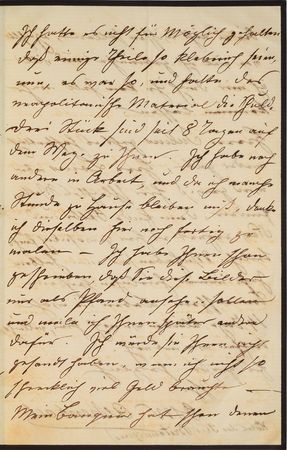 Ich hatte es nicht für Möglich gehalten
daß einige Theile so klebrich sein,
nun, es war so und hatte das
neapolitanische Material die Schuld.
Drei Stück sind seit 8 Tagen auf
dem Weg zu Ihnen. Ich habe noch
andere in Arbeit, und da ich manche
Stunde zu Hause bleiben muß, denke
ich dieselben hier noch fertig zu
malen — Ich habe Ihnen schon
geschrieben daß Sie das Bilder
nur als Pfand ansehen sollen
und male ich Ihnen später andere
dafür. Ich würde sie Ihnen nicht
gesandt haben, wenn ich nicht so
schrecklich viel Geld brauchte —
Mein Banquier hat schon denen